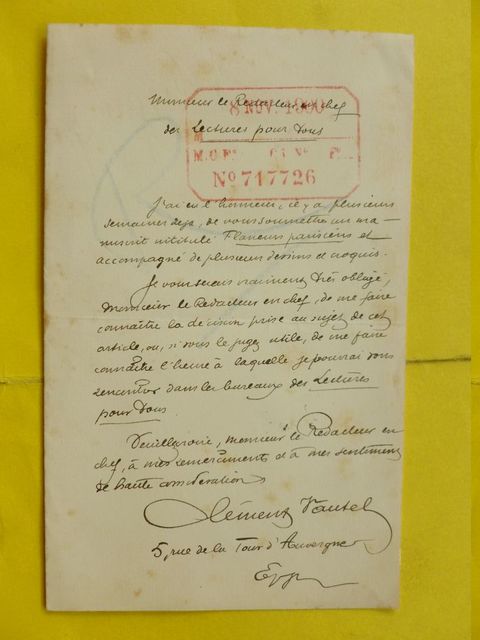 Monsieur le Rédacteur en chef
8 NOV. 1900
des Lectures pour Tous
M.
No 717726
J'ai eu l'honneur, il y a plusieurs
semaines déjà, de vous soumettre un ma-
nuscrit intitulé Flaneurs parisiens et
accompagné de plusieurs dessins et croquis.
Je vous serais vraiment très obligé,
Monsieur le Rédacteur en chef, de me faire
connaître la décision prise au sujet de cet
article, ou, si vous le jugez utile, de me faire
connaître l'heure à laquelle je pourrai vous
rencontrer dans les bureaux des Lectures
pour Tous.
Veuillez croire, Monsieur le Rédacteur en
chef, à mes remerciments et à mes sentiments
de haute considération
Clément Vautel
5, rue de la Tour d'Auvergne